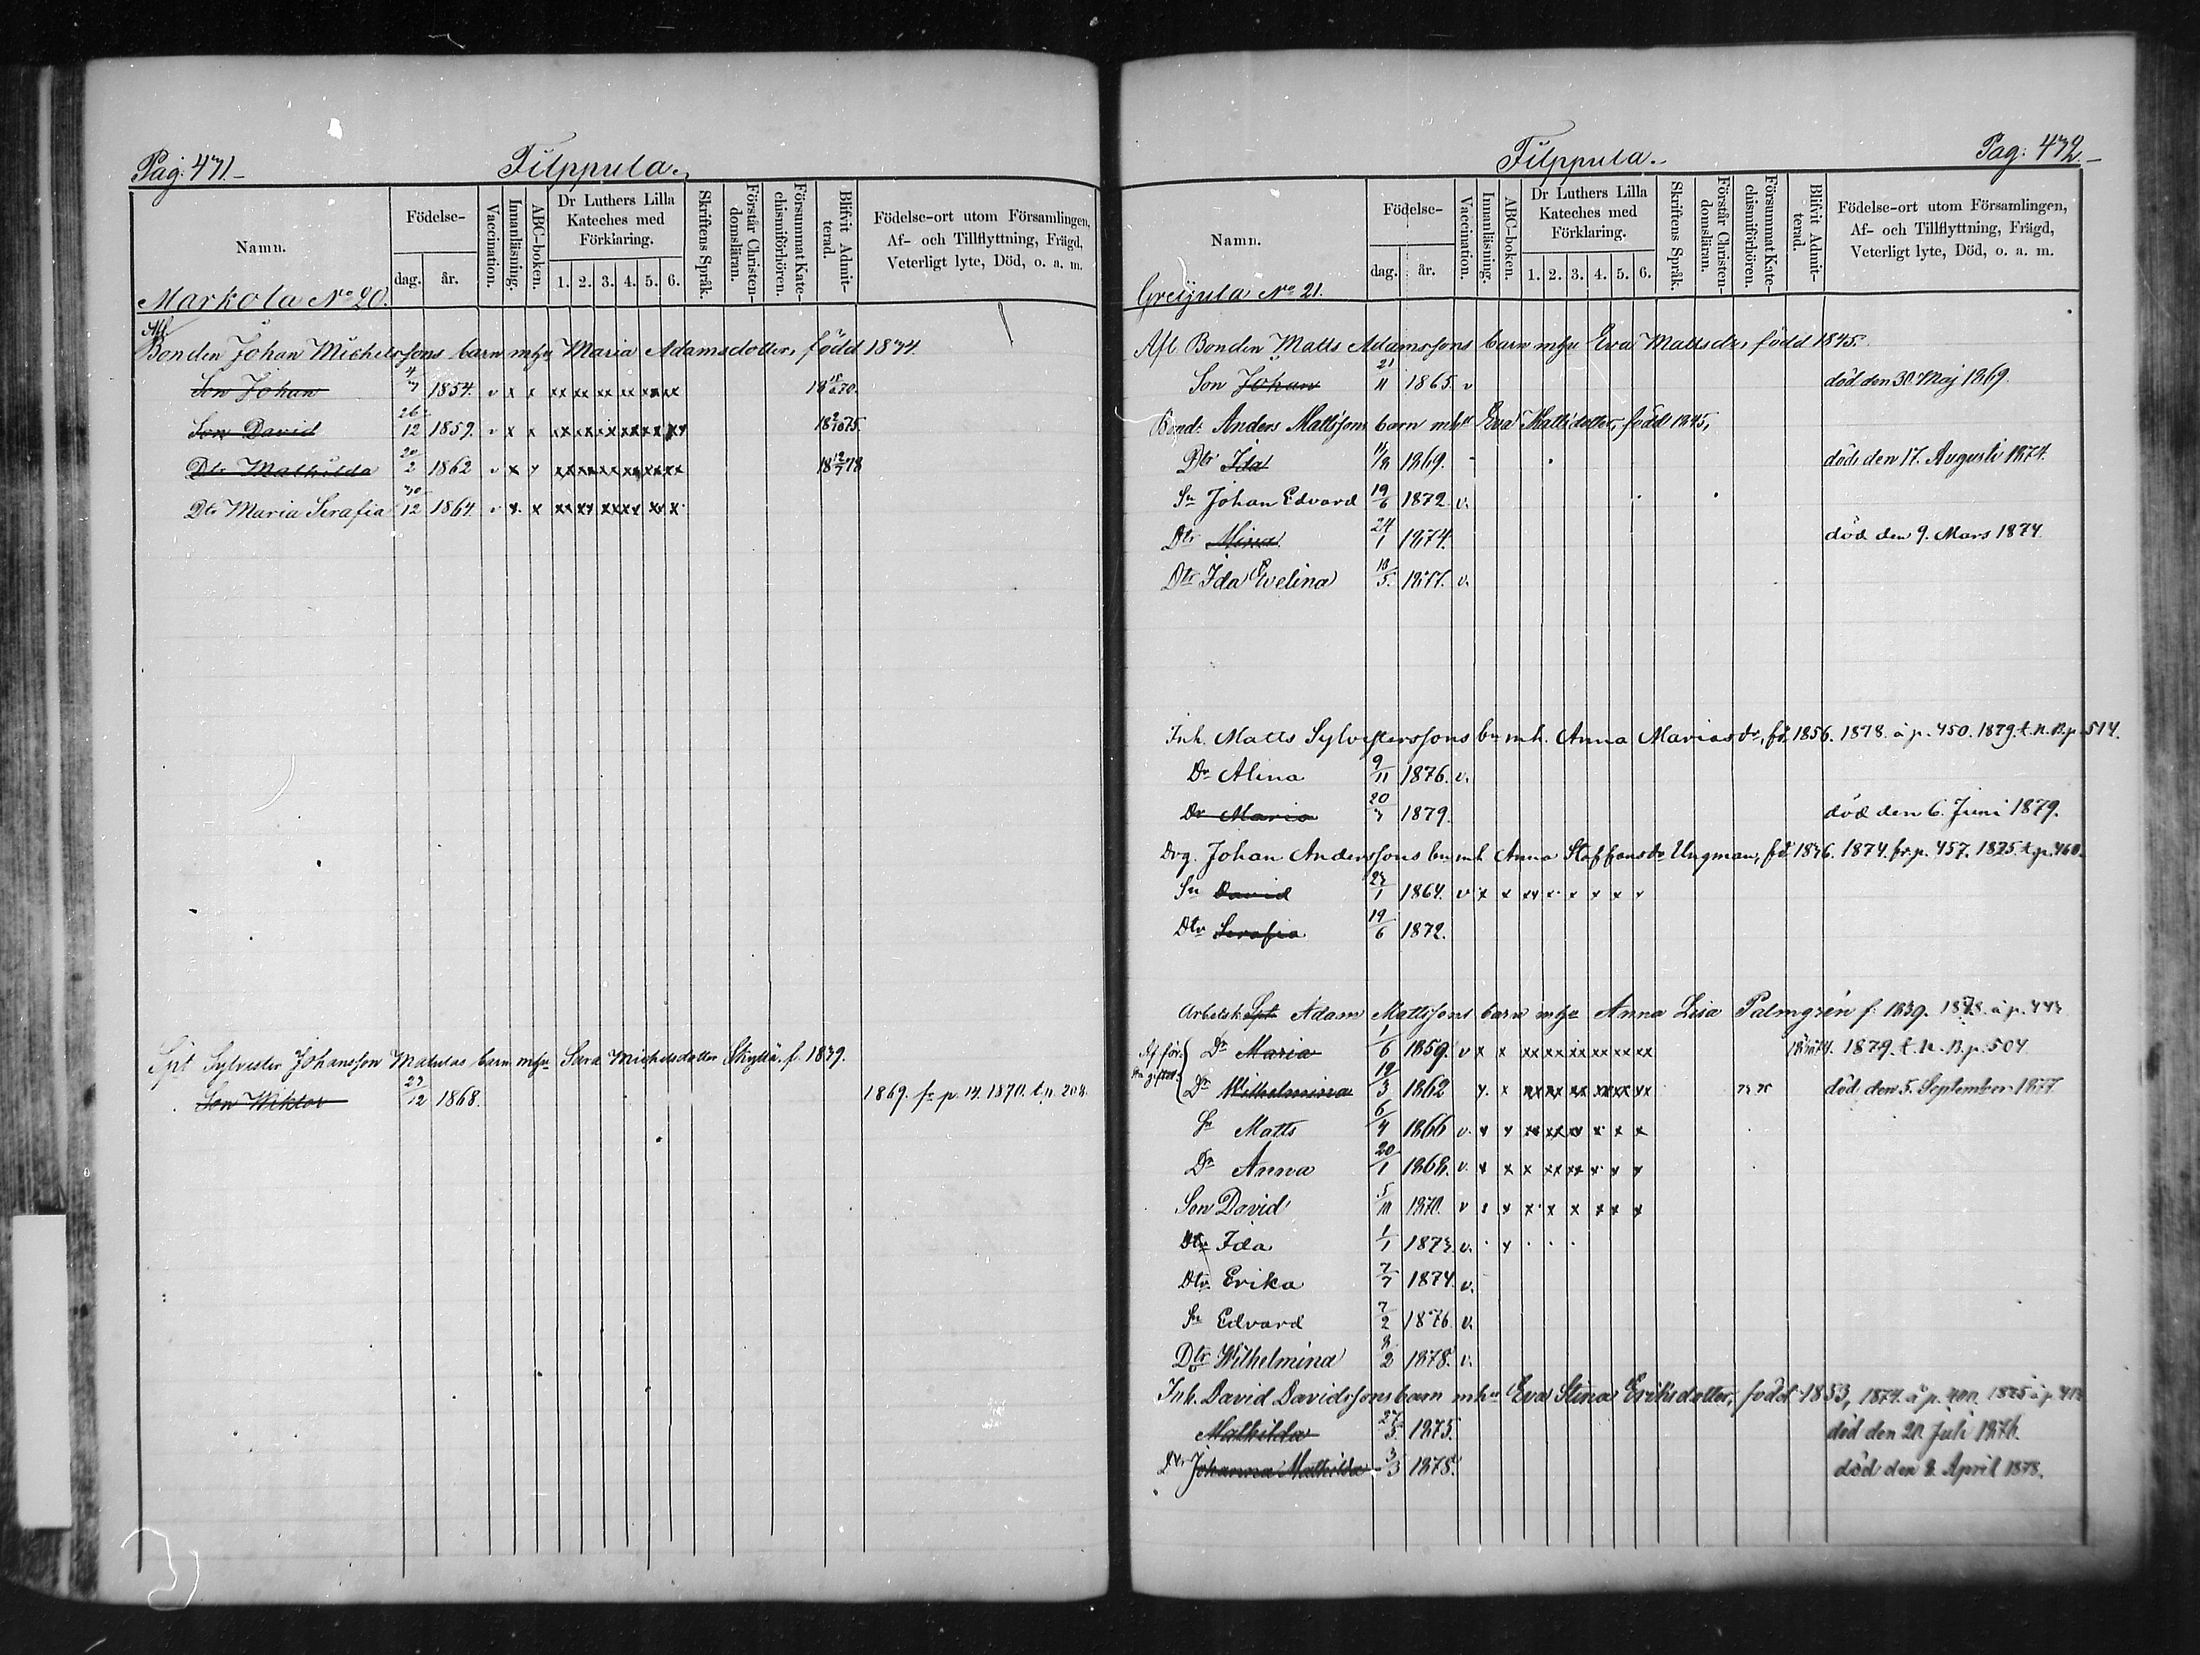 Pag: 471.
Filppula.
Namn.
Födelse-
dag. år.
Vaccination.
Innanläsning.
ABC-boken.
Dr Luthers Lilla Kateches med Förklaring.
1. 2. 3. 4. 5. 6.
Skriftens Språk.
Förstår Christendomsläran.
Försummat Katechismiförhören.
Blifvit Admitterad.
Födelse-ort utom Församlingen, Af- och Tillflyttning, Frägd, Veterligt lyte, Död, o. a. m.
Markola No 20.
Afl.
Bonden Johan Michelssons barn mhu Maria Adamsdotter, född 1834.
Son Johan 4/7 1854. v x x xx xx xx xx xx xx
Son David 26/12 1859. v x x xx xx xx xx xx xx
Dtr Mathilda 20/2 1862 v x x xx xx xx xx xx xx 18 12/7 78
Dtr Maria Serafia 30/12 1864. v x x xx xx xx xx xx x
Spt Sylvester Johansson barn mhu Sara Michelsdotter f. 1839.
Son Wiktor 23/12 1868. 1869. fr p. 14. 1870. t. p. 208.
Pag: 472.
Filppula.
Namn.
Födelse-
dag. år.
Vaccination.
Innanläsning.
ABC-boken.
Dr Luthers Lilla Kateches med Förklaring.
1. 2. 3. 4. 5. 6.
Skriftens Språk.
Förstår Christendomsläran.
Försummat Katechismiförhören.
Blifvit Admitterad.
Födelse-ort utom Församlingen, Af- och Tillflyttning, Frägd, Veterligt lyte, Död, o. a. m.
Greijula No 21.
Afl Bonden Matts Adamssons barn mhu Eva Mattsdr, född 1845.
Son Johan 21/11 1865. v död den 30. Maj 1869.
Bond: Anders Mattssons barn mhu Eva Mattsdotter, född 1845,
Dtr Ida 11/8 1869. död den 17. Augusti 1874.
Sn Johan Edvard 19/6 1872 v.
Dtr Mina 24/1 1874. död den 9. Mars 1874.
Dtr Ida Evelina 18/5 1877. v.
Inh. Matts Sylvesterssons bn mh. Anna Mariasdr, fd. 1856. 1878. å p. 450. 1879. t. N. B. p. 514.
Dr Alina 9/11 1876. v.
Dr Maria 20/3 1879. död den 6. Juni 1879.
Drg. Johan Anderssons bn mh Anna Staffansdr Ungman, fd. 1836. 1874. fr. p. 457. 1875. t. p. 460.
Sn David 23/1 1864. v x x xx x x x x x
Dtr Serafia 19/6 1872.
Arbetsk. Spt Adam Mattssons barn mhu Anna Lisa Palmgren f. 1839. 1878. å p. 443
Af förra giftet
Dr Maria 1/6 1859. v x x xx xx xx xx xx xx 1879. t. N. B. p. 504.
Dr Wilhelmina 19/3 1862 x x xx xx xx xx xx xx död den 5. September 1877.
Sn Matts 6/4 1866 v. x x xx xx xx x x x
Dr Anna 20/1 1868. v. x x x xx xx x x x
Son David 5/11 1870. v x x x x x x x x
Dtr Ida 1/1 1873 v. x
Dtr Erika 7/7 1874. v.
Sn Edvard 7/2 1876. v.
Dtr Wilhelmina 8/2 1878. v.
Inh. David Davidssons barn mhu Eva Stina Eriksdotter, född 1853, 1874. å p. 1875 å p.
Mathilda 27/3 1875. död den 20. Juli 1876.
Dtr Johanna Mathilda 3/3 1878. död den 8. April 1878.